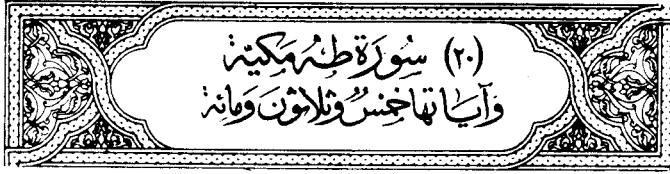 (٢٠) سُورَة طٰهٰ مَكيّة
وَآيَاتها خمْسٌ وَثلاثونَ وَمائة